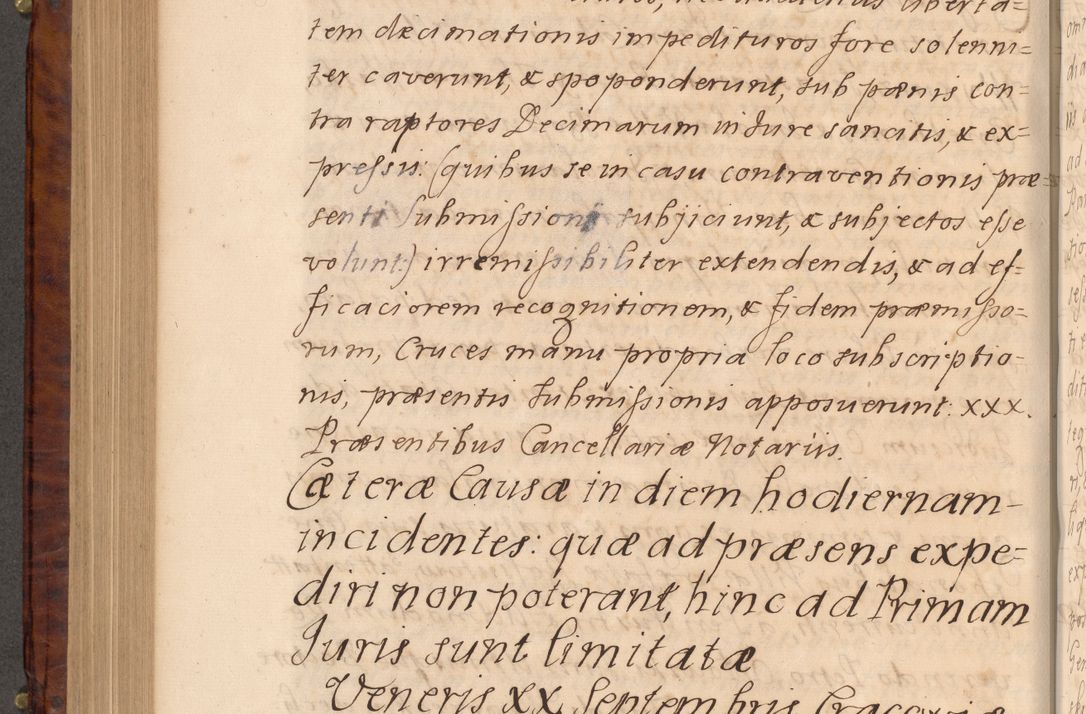 liberta=
tem decimationis impedituros fore solenni=
ter caverunt, & spoponderunt, sub pænis con=
tra raptores Decimarum in Jure sancitis, & ex=
pressis: (quibus se in casu contraventionis præ=
senti submissioni subjiciunt, & subjectos esse
volunt:) irremissibiliter extendendis, & ad ef=
ficaciorem recognitionem, & fidem præmisso=
rum, Cruces manu propria loco subscriptio=
nis, præsentis submissionis apposuerunt. XXX.
Præsentibus Cancellariæ Notariis.
Cæteræ Causæ in diem hodiernam
incidentes: quæ ad præsens expe=
diri non poterant, hinc ad Primam
Juris sunt limitatæ
Veneris XX Septembris Cracoviæ